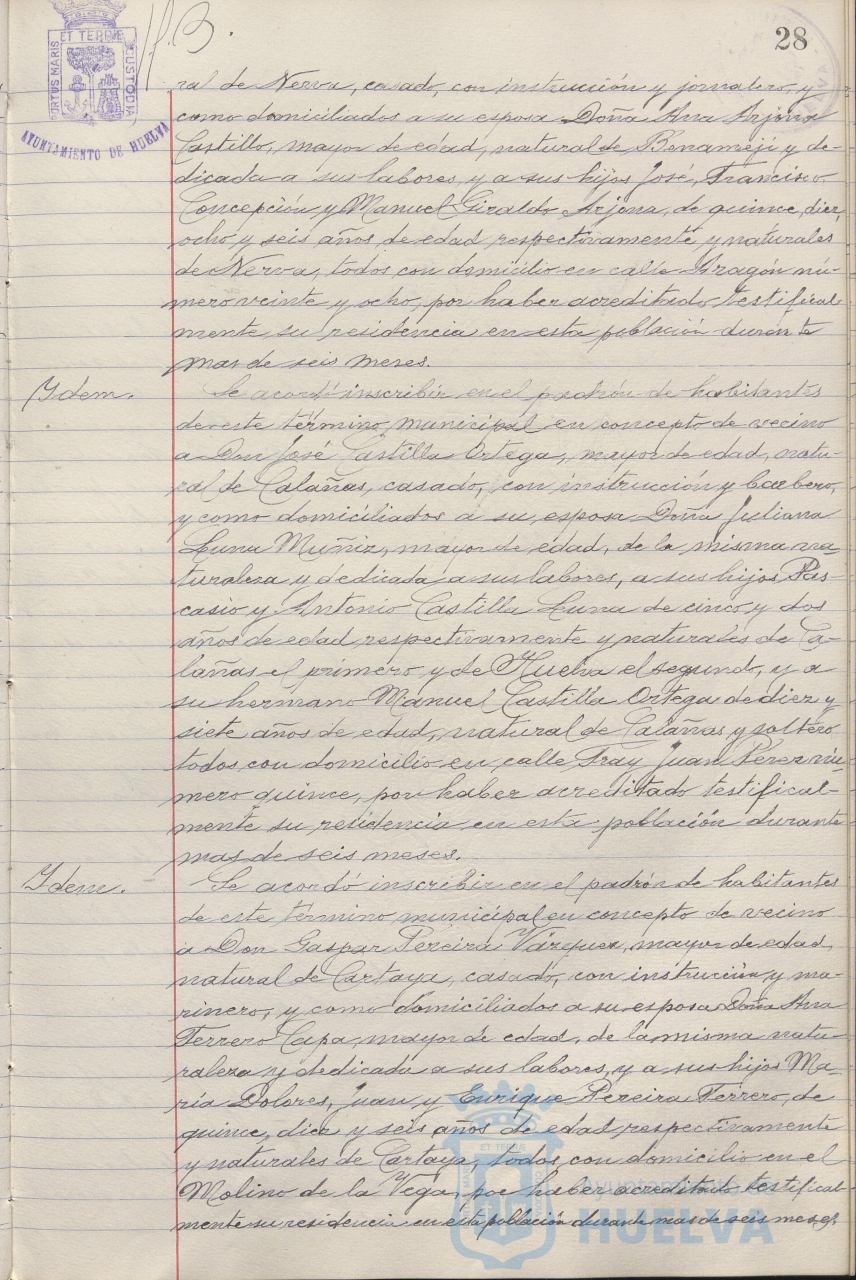 28
ET TERRE
PORTUS MARIS
CUSTODIA
AYUNTAMIENTO DE HUELVA
ral de Nerva, casado, con instrucción y jornalero, y
como domiciliados a su esposa Doña Ana Arjona
Castillo, mayor de edad, natural de Benamejí y de-
dicada a sus labores, y a sus hijos José, Francisco,
Concepción y Manuel Giraldo Arjona, de quince, diez,
ocho y seis años, de edad respectivamente y naturales
de Nerva, todos con domicilio en calle Aragón nú-
mero veinte y ocho, por haber acreditado testifical-
mente su residencia en esta población durante
mas de seis meses.
Ydem. Se acordó inscribir en el padrón de habitantes
de este término municipal en concepto de vecino
a Don José Castilla Ortega, mayor de edad, natu-
ral de Calañas, casado, con instrucción y barbero,
y como domiciliados a su esposa Doña Juliana
Luna Muñiz, mayor de edad, de la misma na-
turaleza y dedicada a sus labores, a sus hijos Pas-
casio y Antonio Castilla Luna de cinco y dos
años de edad respectivamente y naturales de Ca-
lañas el primero y de Huelva el segundo, y a
su hermano Manuel Castilla Ortega de diez y
siete años de edad, natural de Calañas y soltero
todos con domicilio en calle Fray Juan Pérez nú-
mero quince, por haber acreditado testifical-
mente su residencia en esta población durante
mas de seis meses.
Ydem. Se acordó inscribir en el padrón de habitantes
de este término municipal en concepto de vecino
a Don Gaspar Pereira Vázquez, mayor de edad,
natural de Cartaya, casado, con instrucción y ma-
rinero, y como domiciliados a su esposa Doña Ana
Ferrero Capa, mayor de edad, de la misma natu-
raleza y dedicada a sus labores, y a sus hijos Ma-
ría Dolores, Juan y Enrique Pereira Ferrero, de
quince, diez y seis años de edad respectivamente
y naturales de Cartaya, todos con domicilio en el
Molino de la Vega, por haber acreditado testifical-
mente su residencia en esta población durante mas de seis meses.
Ayuntamiento de
HUELVA